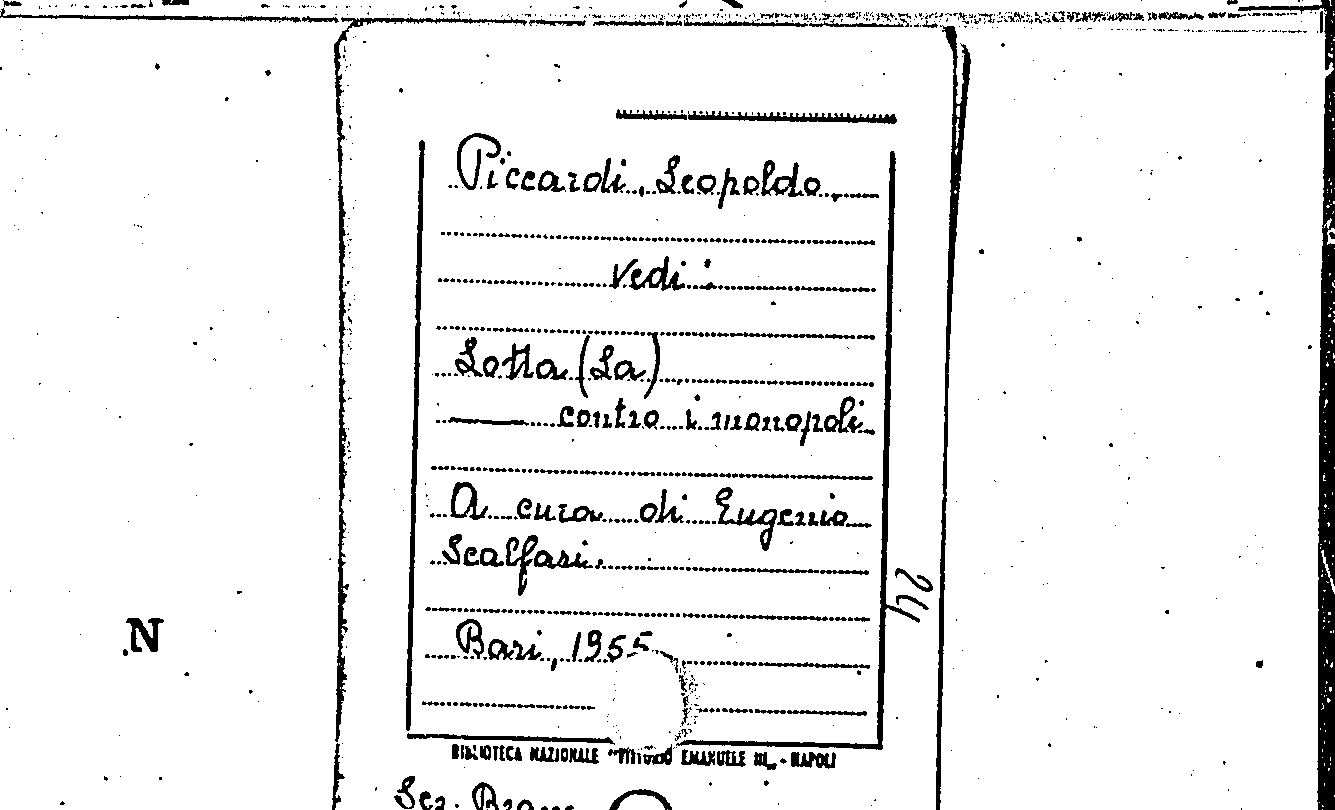 Piccardi, Leopoldo.
Vedi:
Lotta (La)
— contro i monopoli
A cura di Eugenio
Scalfari.
24
Bari, 1955
N
BIBLIOTECA NAZIONALE "VITTORIO EMANUELE III" - NAPOLI